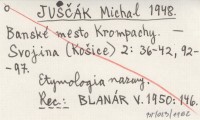 JUŠČÁK Michal 1948.
Banské mesto Krompachy. —
Svojina (Košice) 2: 36-42, 92-
-97.
Etymologia nazvu.
Rec.: BLANÁR V. 1950: 146.